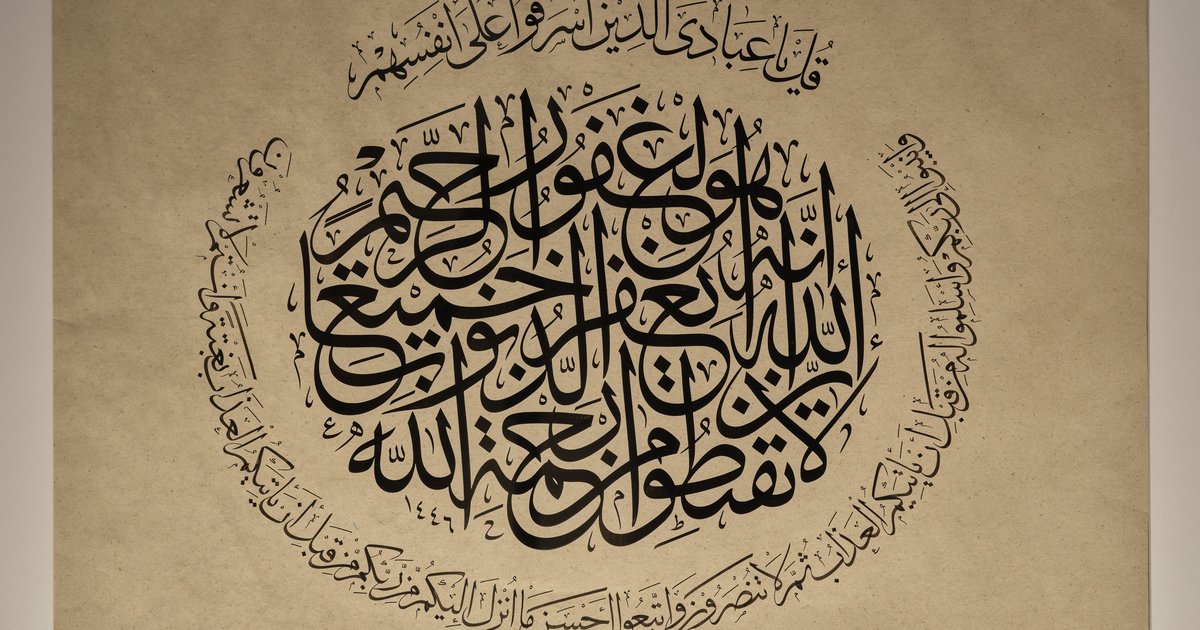 قُلْ يَا عِبَادِىَ الَّذِينَ أَسْرَفُوا عَلَى أَنْفُسِهِمْ
لا تقنطوا من رحمة الله
إن الله يغفر الذنوب جميعا
إنه هو الغفور الرحيم
١٤٤٦هـ
وأنيبوا إلى ربكم وأسلموا له من قبل أن يأتيكم العذاب ثم لا تنصرون واتبعوا أحسن ما أنزل إليكم من ربكم من قبل أن يأتيكم العذاب بغتة وأنتم لا تشعرون